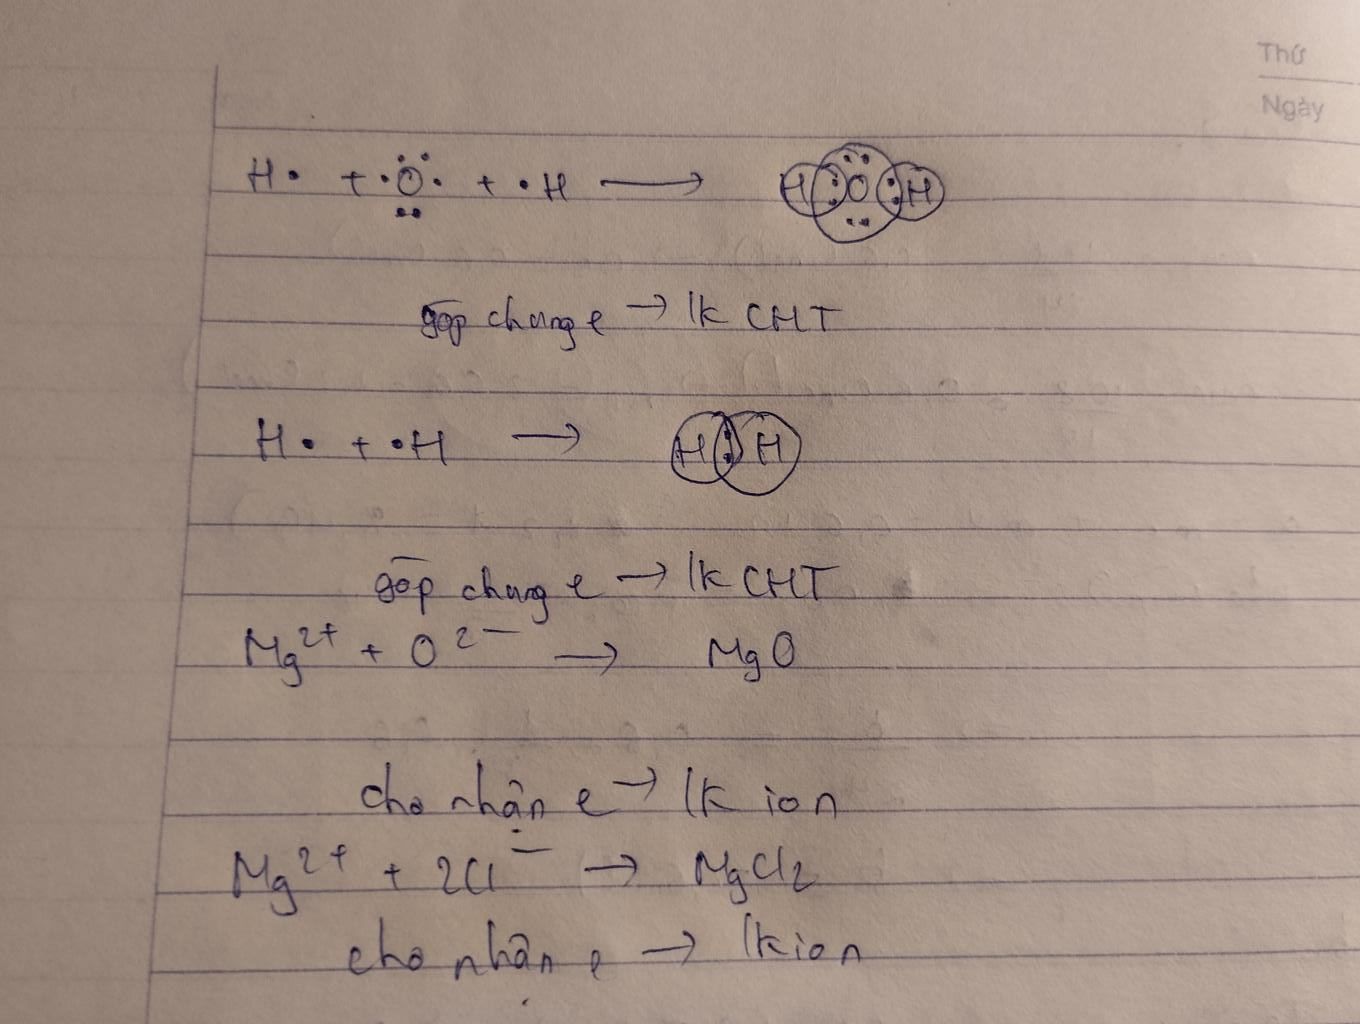 Thứ
Ngày
H• + •Ö• + •H → H:O:H
góp chung e → lk CHT
H• + •H → H:H
góp chung e → lk CHT
Mg²⁺ + O²⁻ → MgO
cho nhận e → lk ion
Mg²⁺ + 2Cl⁻ → MgCl₂
cho nhận e → lk ion